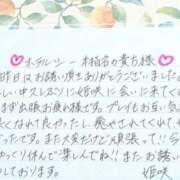 ホテルシー 本指名の貴方様
昨日はお誘い頂きありがとうございました
しい中久しぶりに姫咲に会いに来てくれ
まず出張お疲れ様です。プレイもお互い
くなれて良かったし癒やされてくれて
ったです。また大変だけど頑張って!!今
ゆっくり休んで楽しんでね!!またお誘い
す。 姫咲